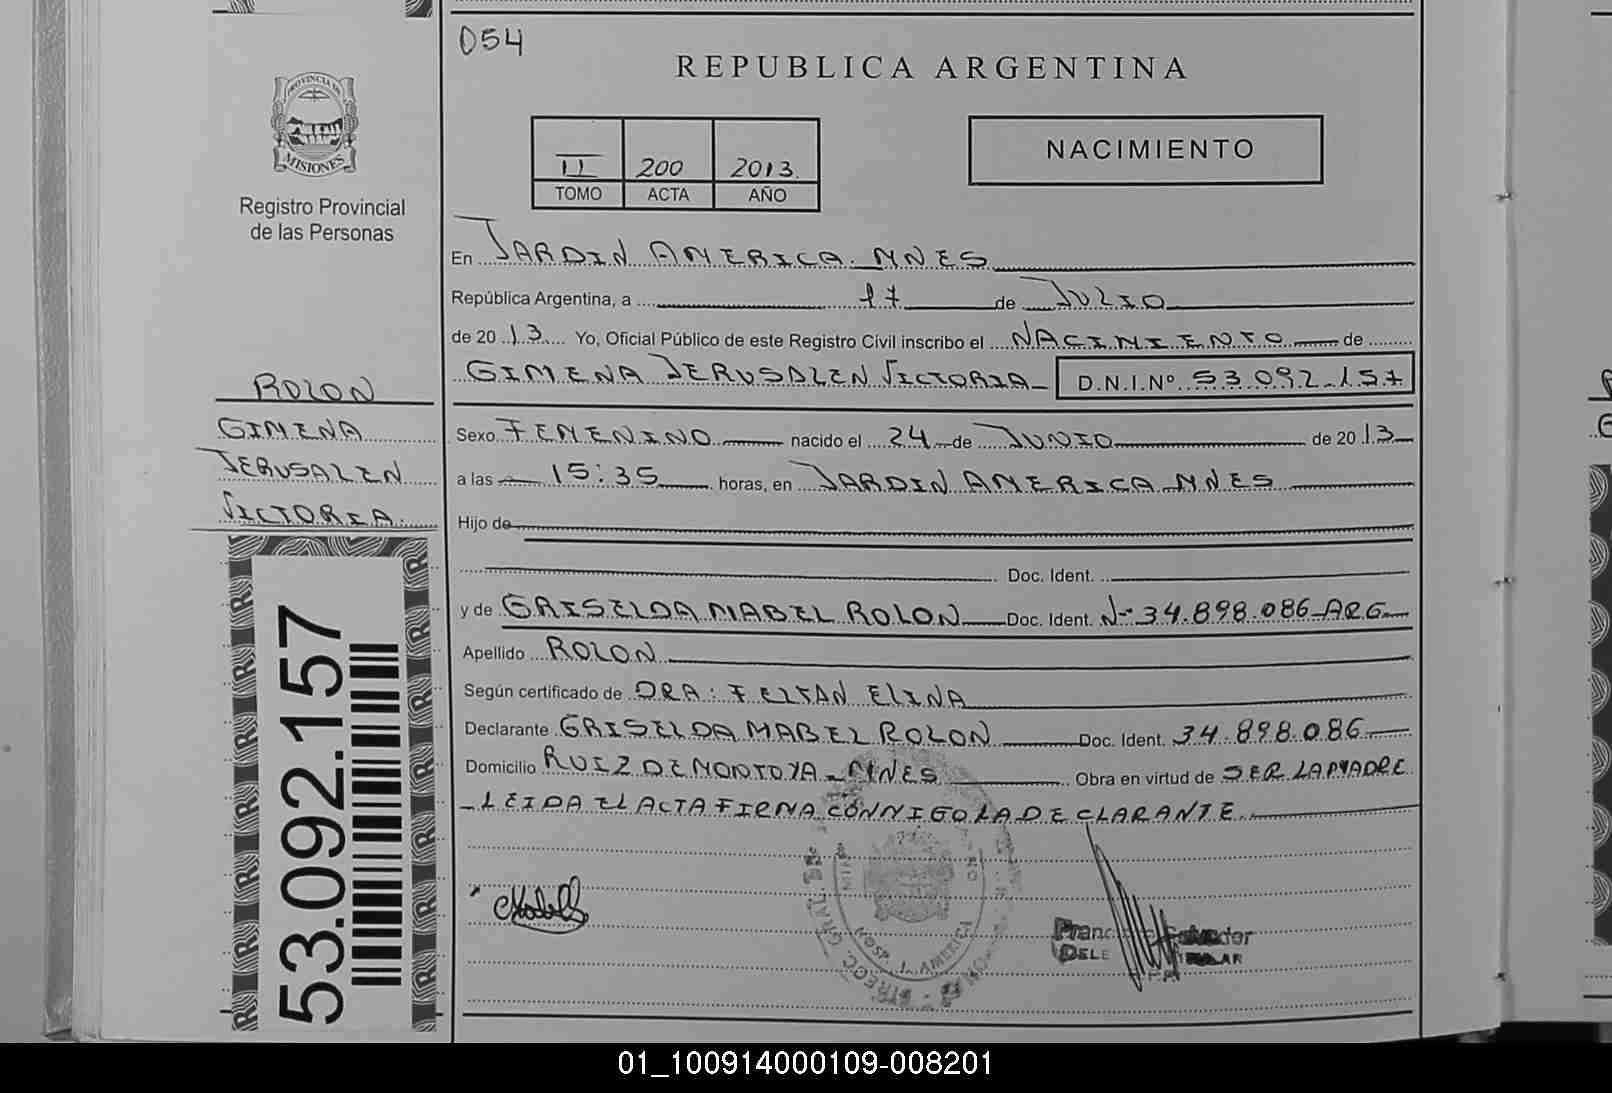 054
REPUBLICA ARGENTINA
PROVINCIA DE
MISIONES
Registro Provincial
de las Personas
II 200 2013.
TOMO ACTA AÑO
NACIMIENTO
En JARDIN AMERICA. MNES
República Argentina, a 17 de JULIO
de 2013 Yo, Oficial Público de este Registro Civil inscribo el NACIMIENTO de
GIMENA JERUSALEN VICTORIA D.N.I.Nº 53.092.157
ROLON
GIMENA
JERUSALEN
VICTORIA.
Sexo FEMENINO nacido el 24 de JUNIO de 2013
a las 15:35 horas, en JARDIN AMERICA MNES
Hijo de
Doc. Ident.
y de GRISELDA MABEL ROLON Doc. Ident. Nº 34.898.086 ARG
Apellido ROLON
Según certificado de DRA: FELTAN ELINA
Declarante GRISELDA MABEL ROLON Doc. Ident. 34.898.086
Domicilio RUIZ DE MONTOYA - MNES Obra en virtud de SER LA MADRE
- LEIDA EL ACTA FIRMA CONMIGO LA DECLARANTE.
53.092.157
HOSP. J. AMERICA
01_100914000109-008201